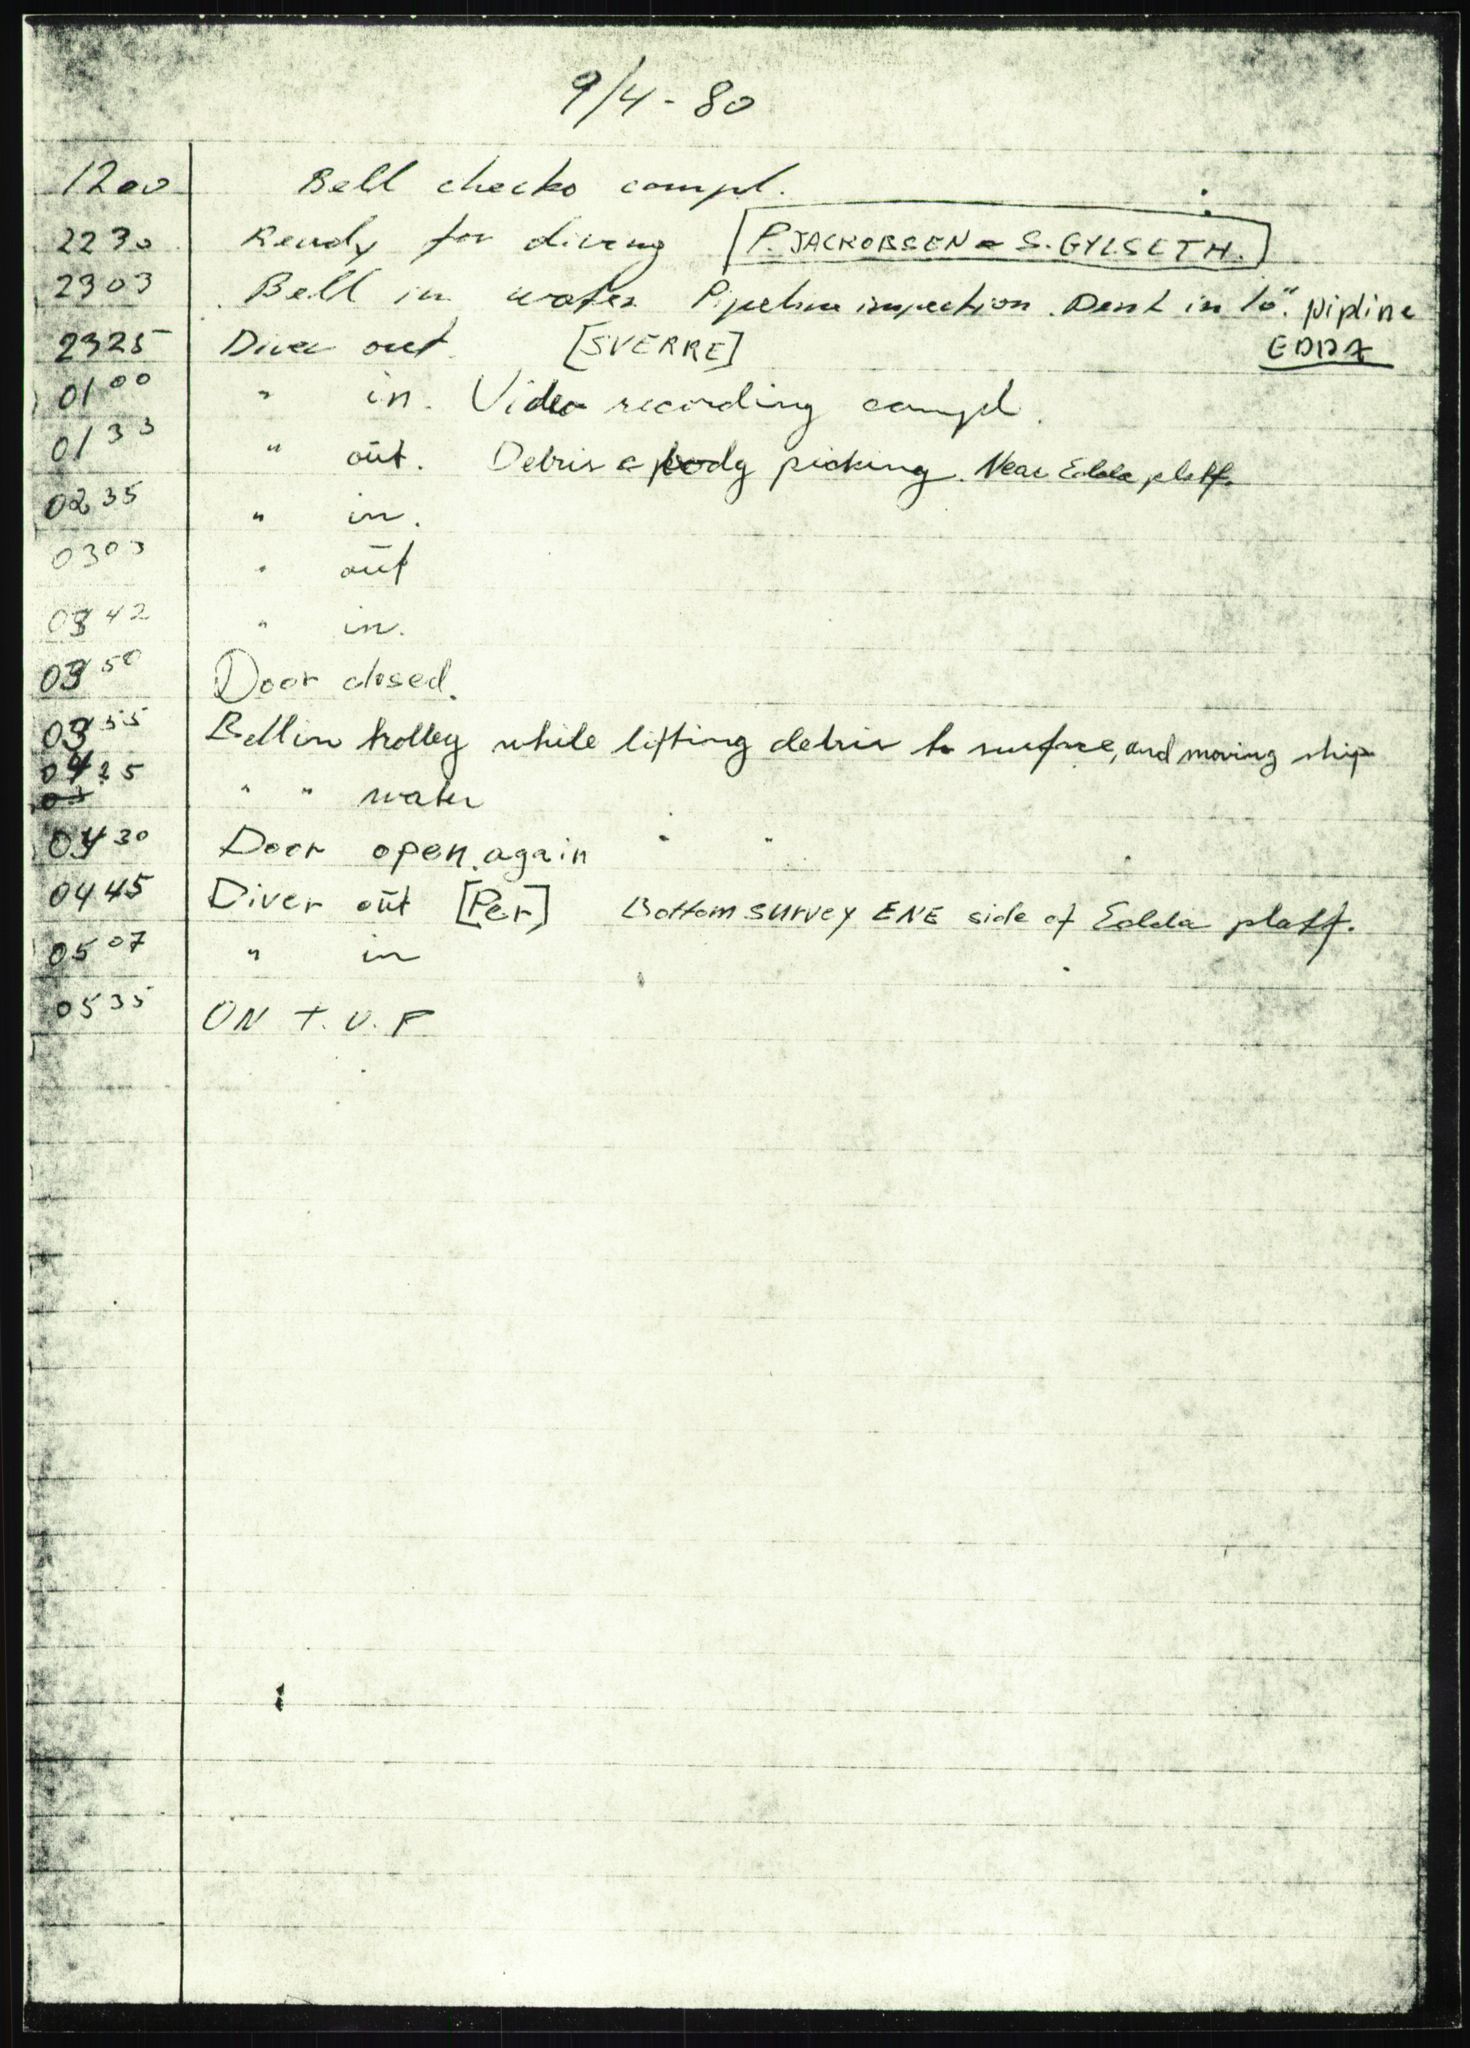 9/4 - 80
1200 Bell checks compl.
2230 Ready for diving [P. JACKOBSEN & S. GYLSETH.]
2303 Bell in water Pipeline inspection. Dent in 10". pipline
2325 Diver out. [SVERRE] EDDA
01 00 " in. Video recording compl.
01 33 " out. Debris & body picking. Near Edda platf.
02 35 " in.
03 03 " out
03 42 " in.
03 50 Door closed.
03 55 Bell in trolley while lifting debris to surface, and moving ship
04 25 " " water
04 30 Door open again
04 45 Diver out [Per] Bottom survey ENE side of Edda platf.
05 07 " in
05 35 ON T.U.P